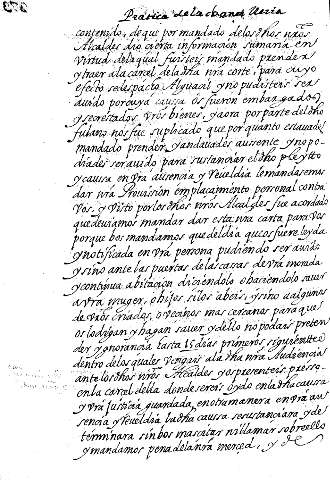 Pratica de la chancilleria
contenido, de que por mandado de los dhos nros
Alcaldes dio cierta informacion sumaria en
virtud de la qual fuisteis mandado prender
y traer a la carcel de la dha nra corte, para cuyo
efecto se despacho Alguacil y no pudisteis ser
avido por cuya caussa os fueron embargados
y secrestados vros bienes, y aora por parte del dho
fulano nos fue suplicado que por quanto estavades
mandado prender, y andavades ausente y no po-
diades ser avido para sustanciar el dho pleytto
y caussa en vra ausencia y Reveldia le mandasemos
dar nra Provission emplaçamiento personal contra
vos, y visto por los dhos nros Alcaldes fue acordado
que deviamos mandar dar esta nra carta para vos
porque bos mandamos que del dia que os fuere leyda
y notificada en vra persona pudiendo ser avido
y sino ante las puertas de las cassas de vra morada
y continua abitacion diciendolo o haciendolo saver
a vra muger, o hijos si los abeis, y sino a algunos
de vros criados, o vecinos mas cercanos para que
os lo digan y hagan saver y de ello no podais preten-
der ygnorancia hasta 15 dias primeros siguientes
dentro de los quales vengais a la dha nra Audiencia
ante los dhos nros Alcaldes y os presenteis presso
en la carcel della donde sereis oydo en la dha caussa
y vra justicia guardada, en otra manera en vra au-
sencia y Reveldia la dha caussa se sustanciara y de-
terminara sin bos mas citar ni llamar sobre ello
y mandamos pena de la nra merced, y de